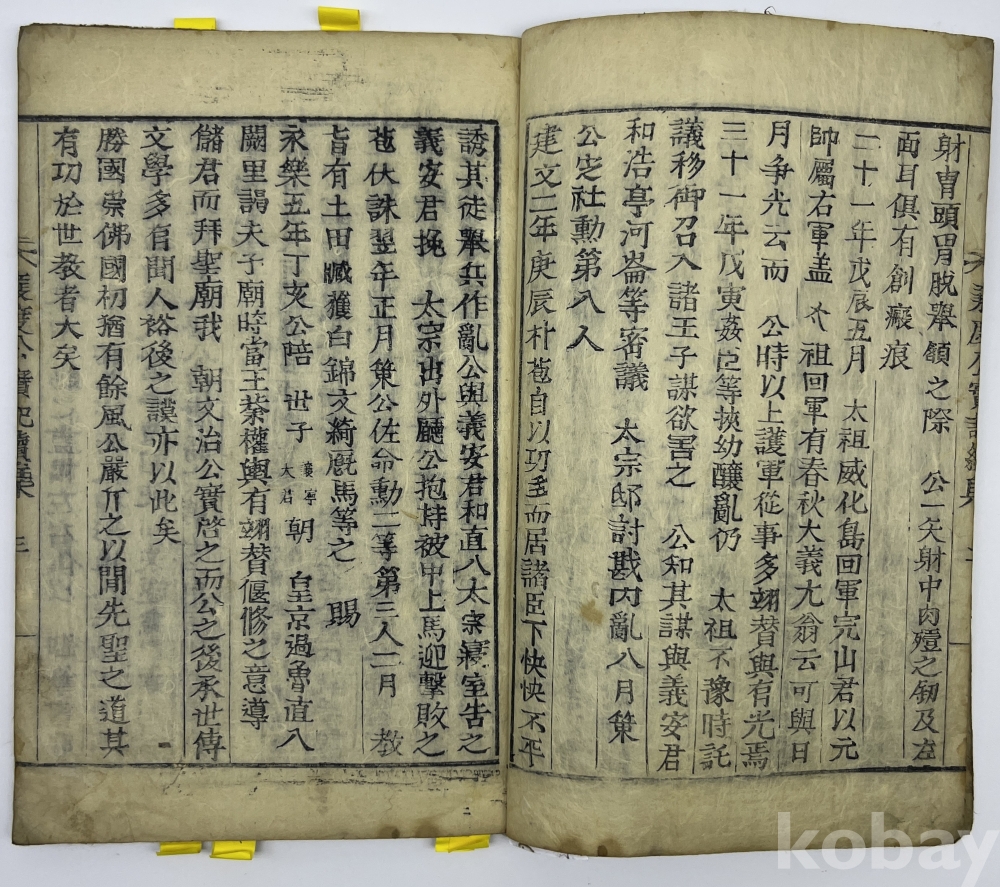 射冑頭冑脫舉額之際 公一矢射中肉殪之釰及左
面耳俱有創瘢痕
二十一年戊辰五月 太祖威化島回軍完山君以元
帥屬右軍盖 太祖回軍有春秋大義尤翁云可與日
月争光云而 公時以上護軍從事多翊賛與有光焉
三十一年戊寅姦臣等挾幼釀亂仍 太祖不豫時託
議移御召入諸王子謀欲害之 公知其謀與義安君
和浩亭河崙等密議 太宗邸討戡內亂八月策
公定社勳第八人
建文二年庚辰朴苞自以功多而居諸臣下怏怏不平
誘其徒舉兵作亂公與義安君和直入太宗寢室告之
義安君挽 太宗出外廳公抱持被甲上馬迎擊敗之
苞伏誅翌年正月策公佐命勳二等第三人二月 教
旨有土田臧獲白錦文綺廐馬等之 賜
永樂五年丁亥公陪 世子 襄寧大君 朝 皇京過魯直入
闕里謁夫子廟時當王業權輿有翊賛偃修之意導
儲君而拜聖廟我 朝文治公實啓之而公之後承世傳
文學多有聞人裕後之謨亦以此矣
勝國崇佛國初猶有餘風公嚴斥之以開先聖之道其
有功於世教者大矣
公實記續集 三